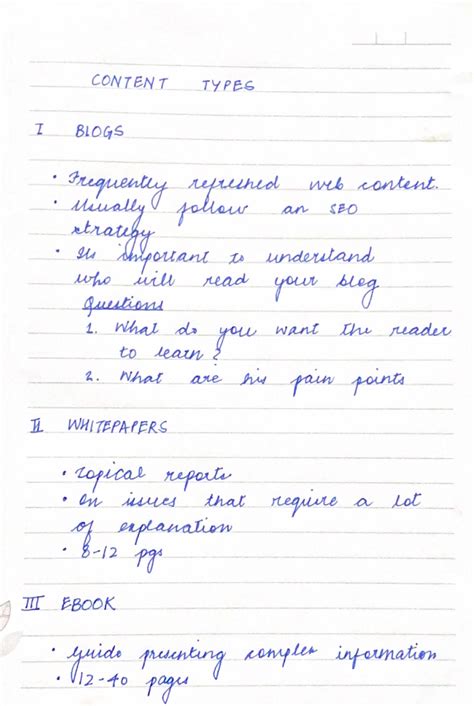 CONTENT TYPES
I BLOGS
• Frequently refreshed web content.
• Usually follow an SEO
strategy
• Its important to understand
who will read your blog
Questions
1. What do you want the reader
to learn?
2. What are his pain points
II WHITEPAPERS
• Topical reports
• On issues that require a lot
of explanation
• 8-12 pgs
III EBOOK
• Guide presenting complex information
• 12-40 pages